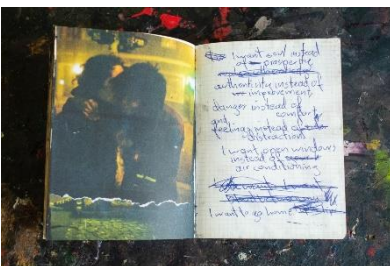 I want soul instead
of prosperity
authenticity instead of
improvement
danger instead of
and comfort
feelings instead of
distraction
I want open windows
instead of
air conditioning
I want to go home